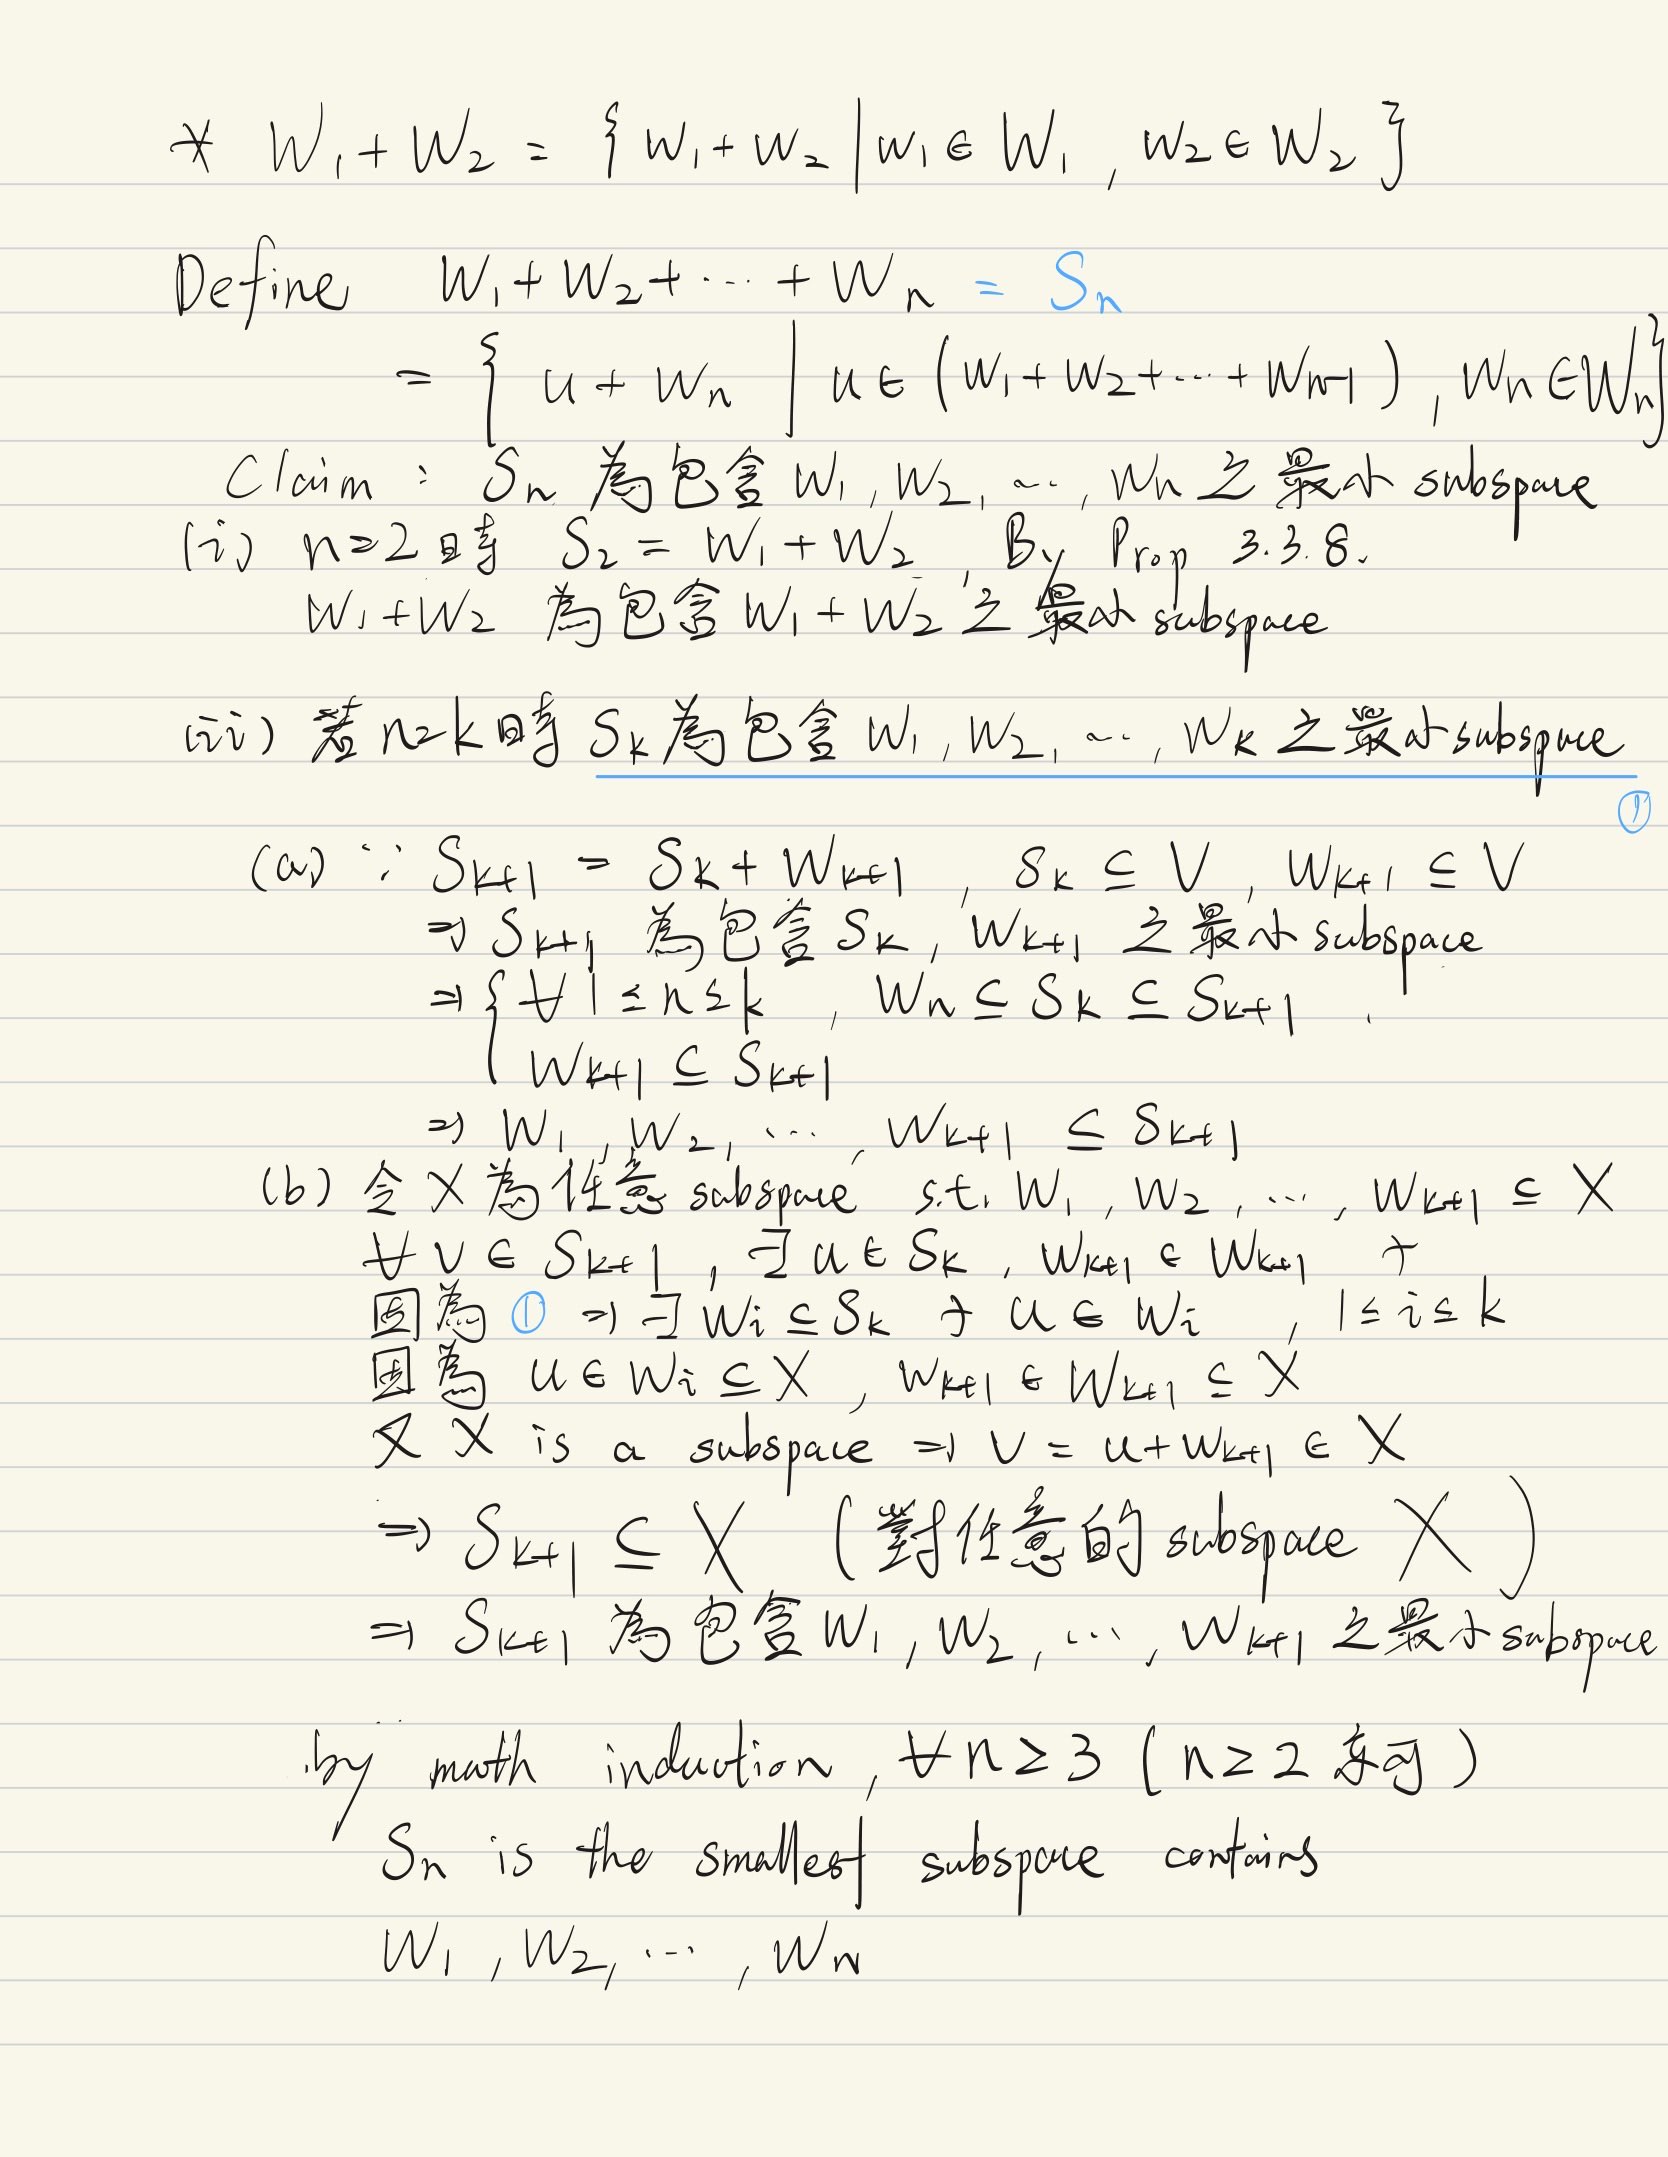 * W₁ + W₂ = { w₁ + w₂ | w₁ ∈ W₁ , w₂ ∈ W₂ }
Define W₁ + W₂ + ⋯ + Wₙ = Sₙ
= { u + wₙ | u ∈ (W₁ + W₂ + ⋯ + Wₙ₋₁) , wₙ ∈ Wₙ}
Claim : Sₙ 為包含 W₁ , W₂ , ⋯ , Wₙ 之最小 subspace
(i) n=2 時 S₂ = W₁ + W₂ , By Prop 3.3.8.
W₁ + W₂ 為包含 W₁ + W₂ 之最小 subspace
(ii) 若 n=k 時 Sₖ 為包含 W₁ , W₂ , ⋯ , Wₖ 之最小 subspace
①
(a) ∵ Sₖ₊₁ = Sₖ + Wₖ₊₁ , Sₖ ⊆ V , Wₖ₊₁ ⊆ V
⇒ Sₖ₊₁ 為包含 Sₖ , Wₖ₊₁ 之最小 subspace
⇒ { ∀ 1 ≤ n ≤ k , Wₙ ⊆ Sₖ ⊆ Sₖ₊₁ .
Wₖ₊₁ ⊆ Sₖ₊₁
⇒ W₁ , W₂ , ⋯ , Wₖ₊₁ ⊆ Sₖ₊₁
(b) 令 X 為任意 subspace s.t. W₁ , W₂ , ⋯ , Wₖ₊₁ ⊆ X
∀ v ∈ Sₖ₊₁ , ∃ u ∈ Sₖ , wₖ₊₁ ∈ Wₖ₊₁ ∋
因為 ① ⇒ ∃ Wᵢ ⊆ Sₖ ∋ u ∈ Wᵢ , 1 ≤ i ≤ k
因為 u ∈ Wᵢ ⊆ X , wₖ₊₁ ∈ Wₖ₊₁ ⊆ X
又 X is a subspace ⇒ v = u + wₖ₊₁ ∈ X
⇒ Sₖ₊₁ ⊆ X (對任意的 subspace X)
⇒ Sₖ₊₁ 為包含 W₁ , W₂ , ⋯ , Wₖ₊₁ 之最小 subspace
by math induction , ∀ n ≥ 3 ( n ≥ 2 亦可 )
Sₙ is the smallest subspace contains
W₁ , W₂ , ⋯ , Wₙ